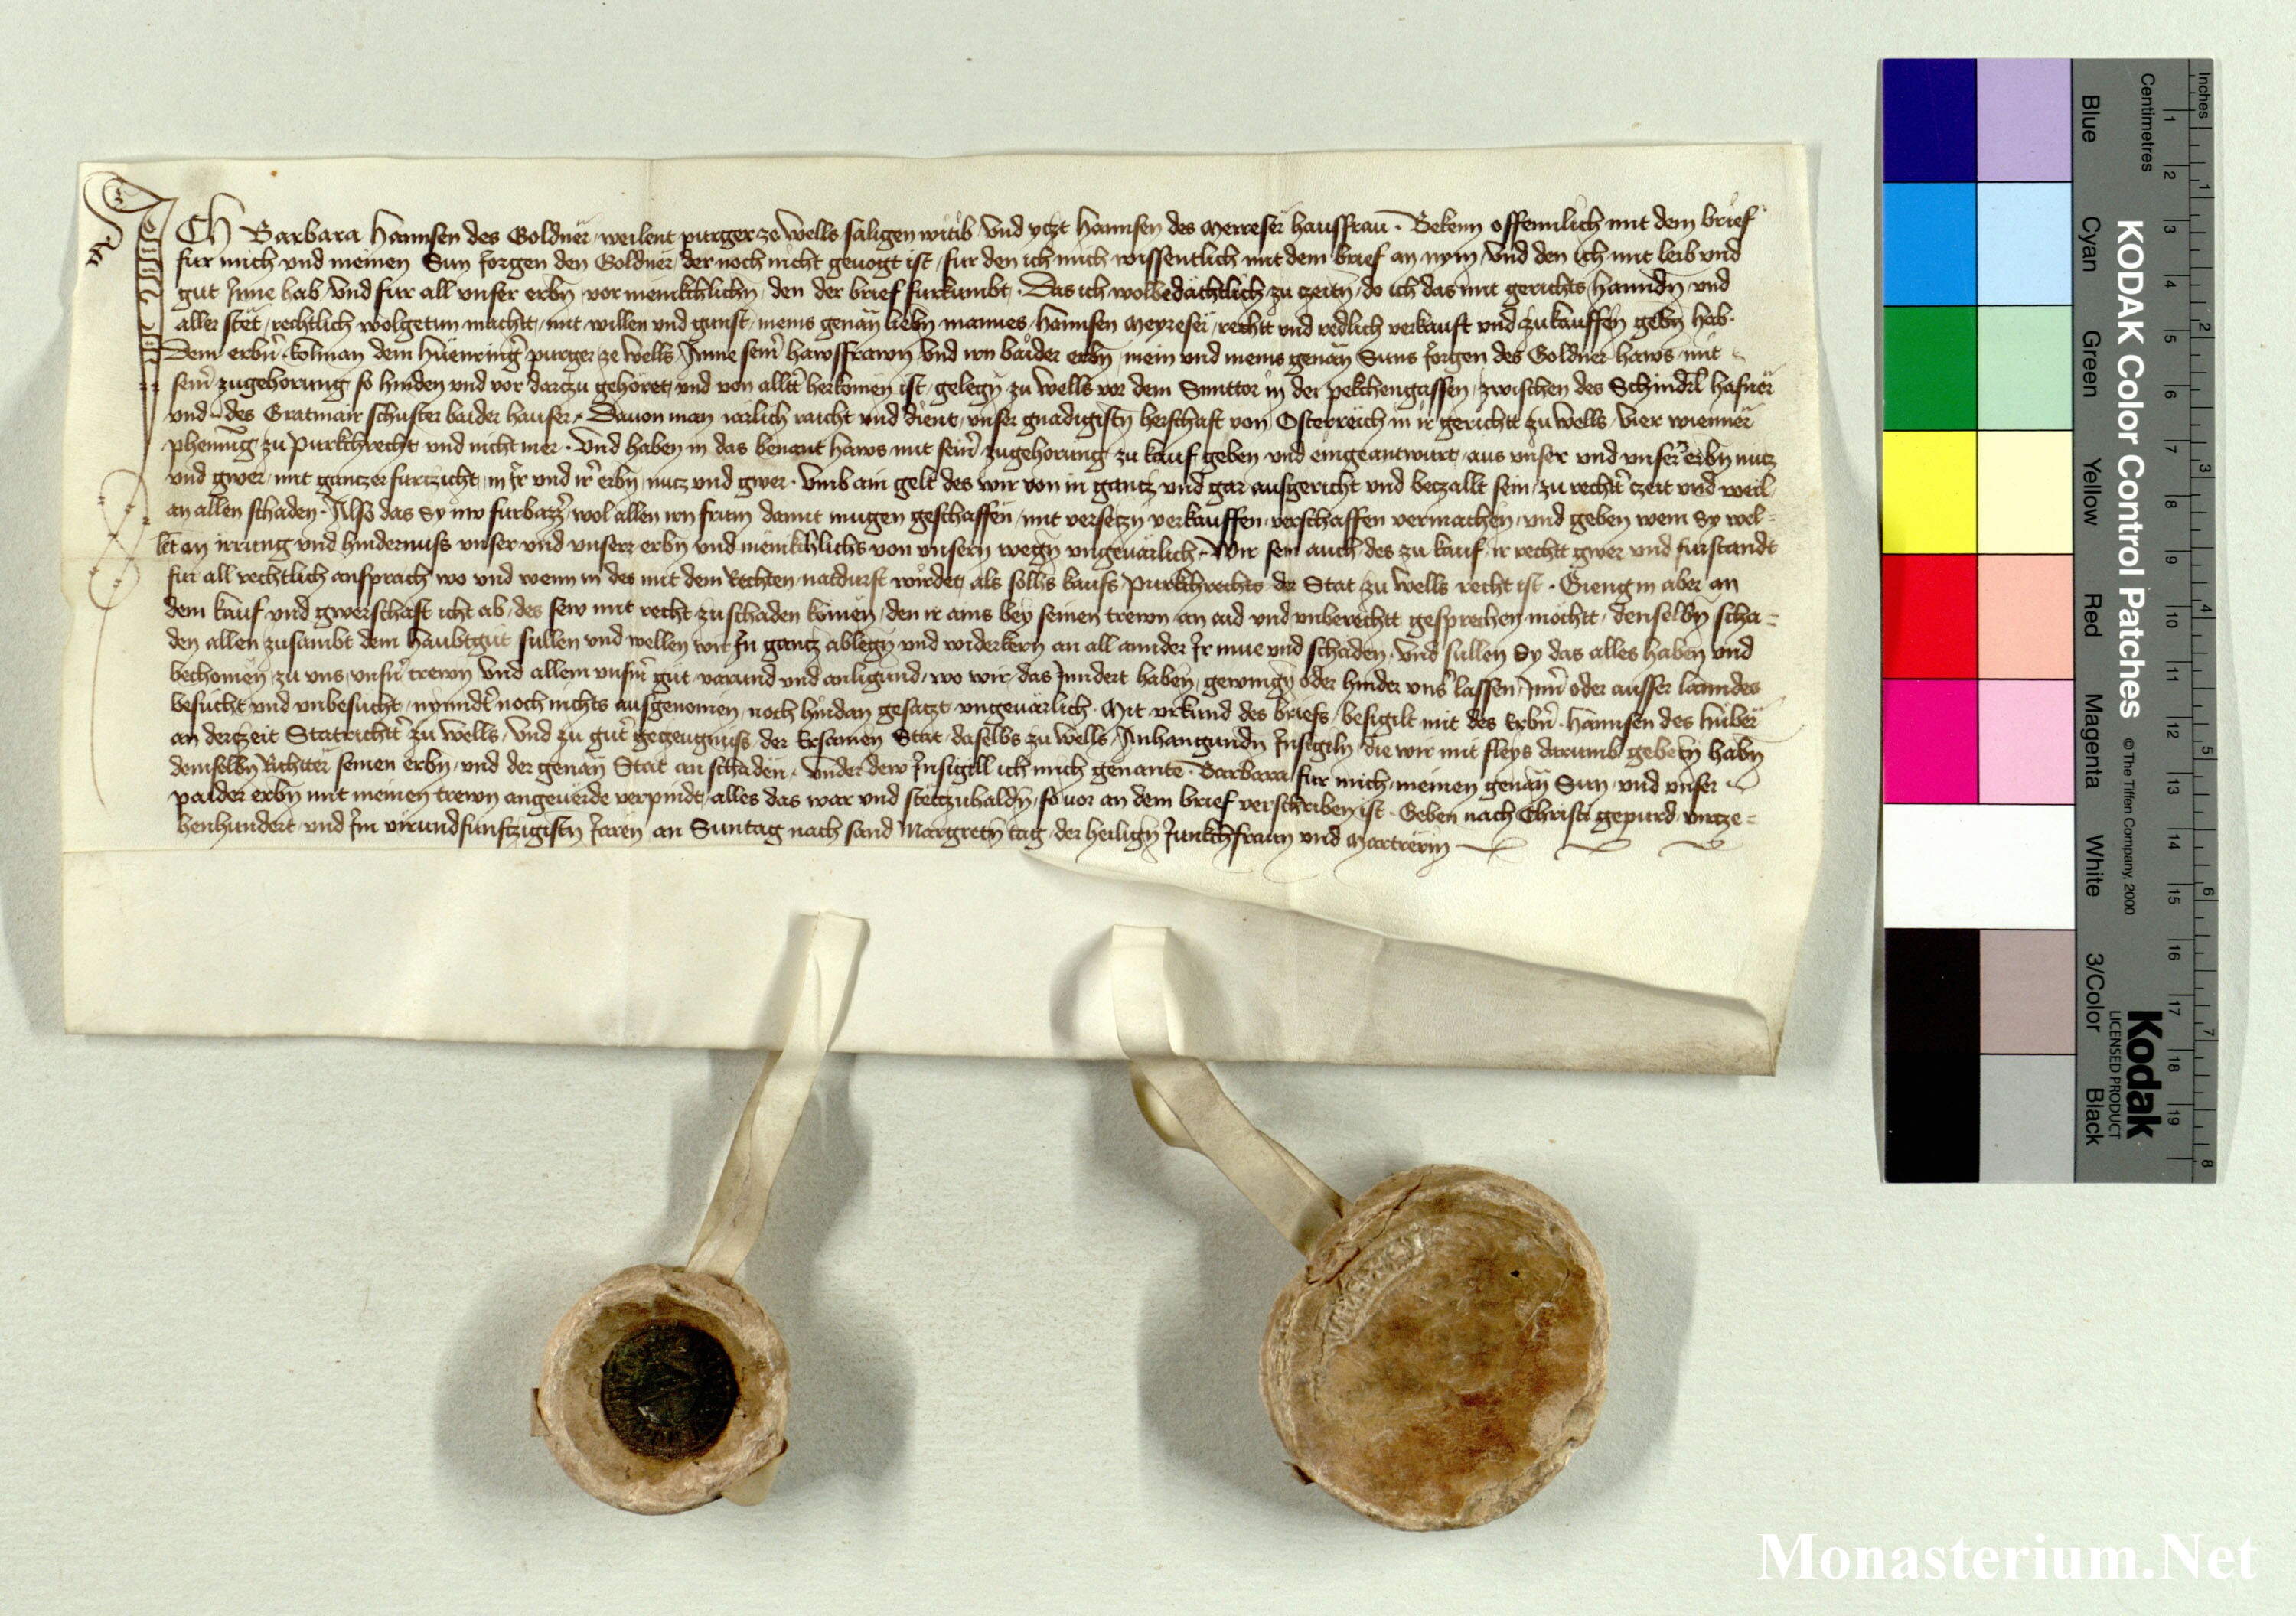 ICH Barbara Hannsen des Goldner weilent purger ze Wells saligen witib Und yczt Hannsen des Merreser hausfrau · Bekenn offennlich mit dem brief
fur mich und meinen Sun Jorgen den Goldner der noch nicht geuogt ist / fur den ich mich wissentlich mit dem brief an nym / Und den ich mit leib und
gut Inne hab Und fur all unser erbn vor menikchlichn den der brief furkumbt · Das ich wolbedächtlich zu czeitn do ich das mit gerichts hanndn und
aller stet rechtlich wolgetun machtt mit willen und gunst meins genan liebn mannes Hannsen Meyreser rechtt und redlich verkauft und zukauffen gebn hab ·
Dem erbn Kolman dem Huenring purger ze Wells Anne sein hawsfrawn Und irn baider erbn mein und meins genan Suns Jorgen des Goldner haws mit
sein zugehorung so hinden und vor darczu gehoret und von alltt herkomen ist gelegn zu Wells vor dem Smittor in der pekchengassen zwischen des Schindel hafner
und des Gratmair schuster baider hauser · Dauon man iarlich raicht und dient unser gnadigistn herschaft von Osterreich in ir gerichtt zu Wells Vier wienner
phennig zu purkchrecht und nicht mer · Und haben in das benant haws mit sein zugehorung zu kauf geben und eingeantwurt aus unser und unser erbn nucz
und gwer mit ganczer furczicht in Ir und ir erbn nucz und gwer · Umb ain gelt des wir von in gancz und gar ausgericht und beczallt sein zu recht czeit und weil
an allen schaden · Also das Sy nu furbazz wol allen irn frum damit mugen geschaffen mit verseczn verkauffen verschaffen vermachen und geben wem Sy wel=
lt an irrung und hindernuss unser und unserr erbn und menikchlichs von unsern wegn ungeuärlich · Wir sein auch des zu kauf ir recht gwer und furstandt
fur all rechtlich ansprach wo und wenn in des mit dem Rechten natdurft wurdet als sollhs kaufs purkchrechts der Stat zu Wells recht ist · Gieng in aber an
dem kauf und gwerschaft icht ab des sew mit recht zu schaden komen den ir ains bey seinen trewn an aid und unberechtt gesprechen mochtt denselbn scha=
den allen zusambt dem haubtgut sullen und wellen wir In gancz ablegn und widerkern an all annder Ir mue und schaden Und sullen Sy das alles haben und
bechomen zu uns unsn trewn Und allem unsm gut varund und anligund wo wir das Inndert haben gewingn oder hinder uns lassen Inn oder ausser lanndes
besucht und unbesucht nynndt noch nichts ausgenomen noch hindan gesaczt ungeuärlich · Mit urkund des briefs besigilt mit des Erbn · Hannsen des Huber
an derczeit Statrichtt zu Wells Und zu gut geczeugnuss der Ersamen Stat daselbs zu Wells Anhangundn Insigeln die wir mit fleys darumb gebetn habn
demselbn Richtter seinen erbn und der genan Stat an schaden · Under dew Insigill ich mich genante Barbara fur mich meinen genan Sun und unser
paider erbn mit meinen trewn angeuerde verpindt alles das war und stet zuhaldn so uor an dem brief verschriben ist · Geben nach Christi gepurd virtze=
henhundert und Im virundfunfczigistn Jaren an Suntag nach sand Margretn tag der heilign Junkchfrawn und Martrerin
KODAK Color Control Patches
© The Tiffen Company, 2000
Kodak
LICENSED PRODUCT
Inches 1 2 3 4 5 6 7 8
Centimetres 1 2 3 4 5 6 7 8 9 10 11 12 13 14 15 16 17 18 19
Blue Cyan Green Yellow Red Magenta White 3/Color Black
Monasterium.Net